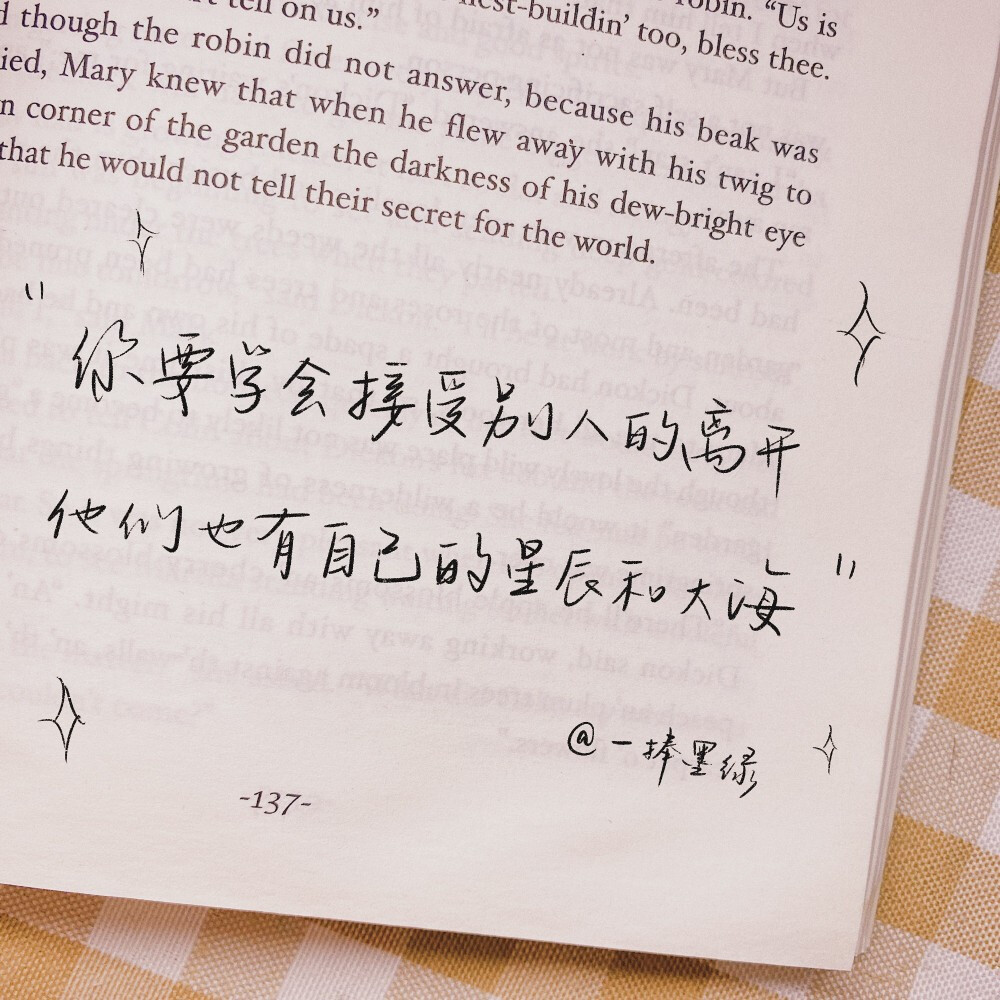 tell on us.”
nest-buildin’ too, bless thee.
robin. “Us is
though the robin did not answer, because his beak was
ied, Mary knew that when he flew away with his twig to
n corner of the garden the darkness of his dew-bright eye
that he would not tell their secret for the world.
"你要学会接受别人的离开
他们也有自己的星辰和大海"
@一捧墨绿
-137-